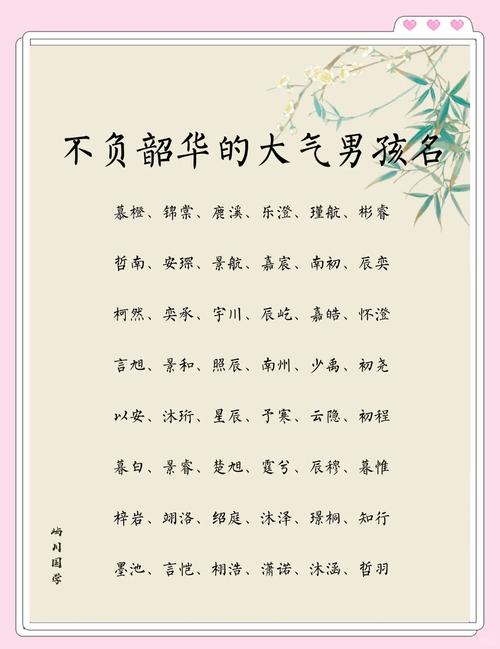 不负韶华的大气男孩名
慕橙、锦棠、鹿溪、乐澄、瑾航、彬睿
哲南、安琛、景航、嘉宸、南初、辰奕
柯然、奕承、宇川、辰屹、嘉皓、怀澄
言旭、景和、照辰、南州、少禹、初尧
以安、沐珩、星辰、予寒、云隐、初程
暮白、景睿、楚旭、霆兮、辰穆、暮惟
梓岩、翊洛、绍庭、沐泽、璟桐、知行
墨池、言恺、栩浩、潇诺、沐涵、哲羽
屿川国学